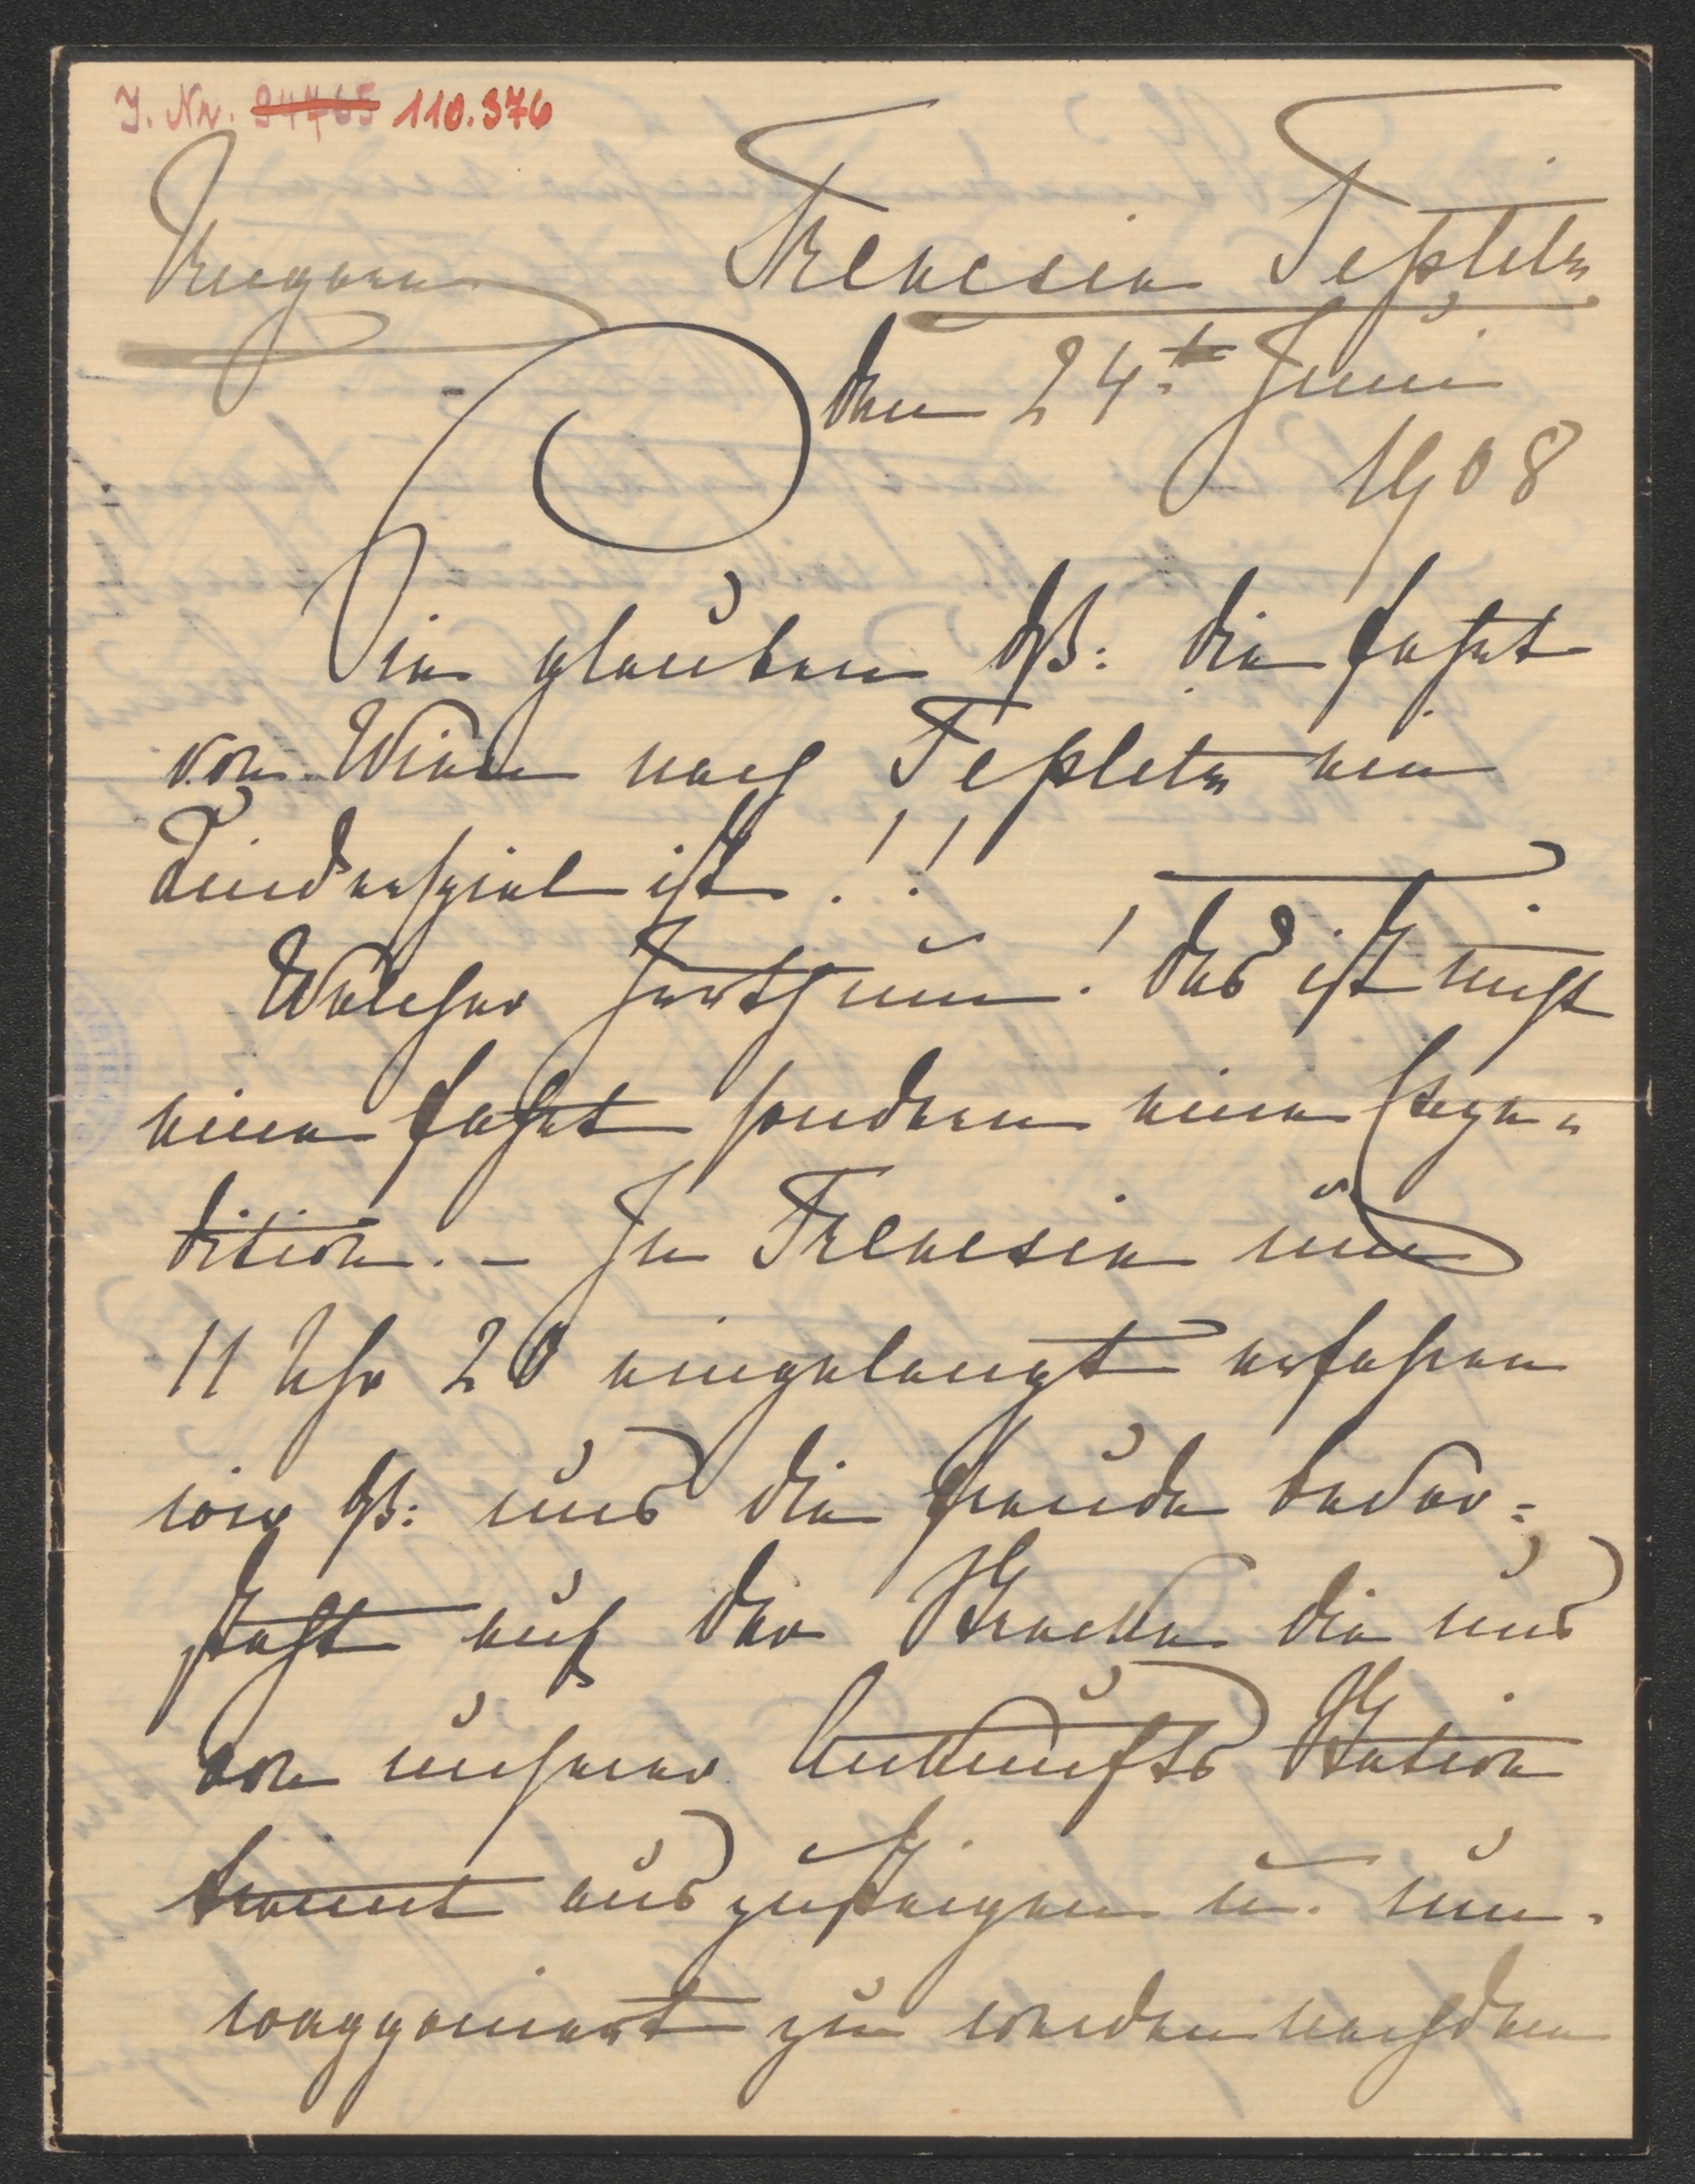 J. Nr. 94765 110.376
Ungarn
Trencsin Teplitz
den 24t Juni
1908
Sie glauben dß: die Fahrt
von Wien nach Teplitz ein
Kinderspiel ist!!
Welcher Irrthum! das ist nicht
eine Fahrt sondern eine Expe=
dition. – In Trencsin um
11 Uhr 20 eingelangt erfahren
wir dß: uns die Freude bevor=
steht auf der Strecke die uns
von unserer Ankunfts Station
trennt auszusteigen u. um=
waggoniert zu werden nachdem